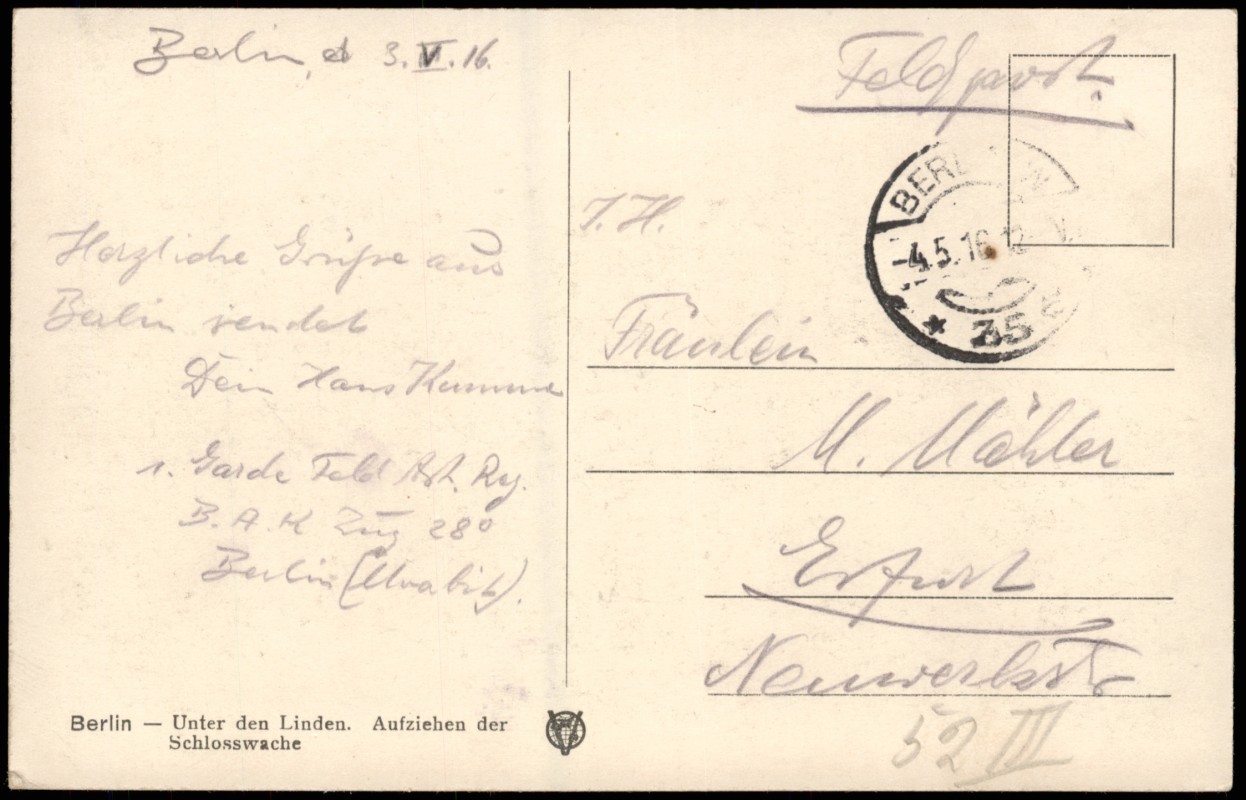 Berlin, d 3. V. 16.
Herzliche Grüße aus
Berlin sendet
Dein Hans
1. Garde Feld Art. Reg.
B. A. K Zug 280
Berlin (Moabit).
Berlin — Unter den Linden. Aufziehen der
Schlosswache
Feldpost.
BERLIN
-4.5.16 12-
* 35
Fräulein
M. Mähler
Erfurt
Neuwerkstr
52 III